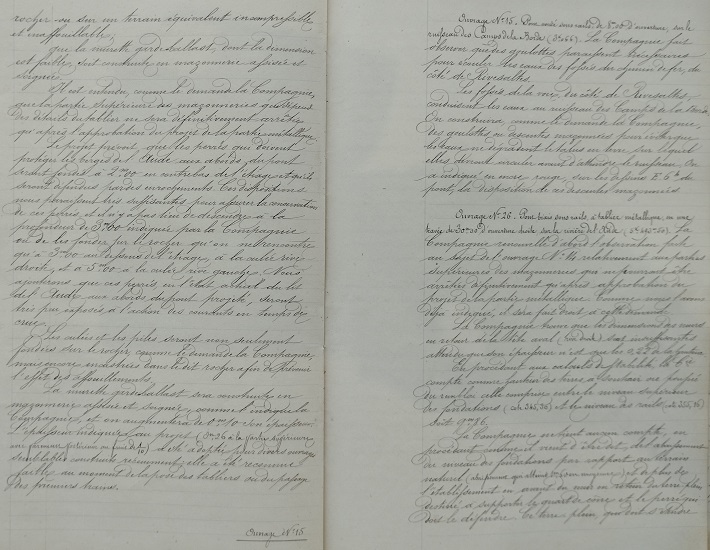 rocher ou sur un terrain équivalent incompressible
et inaffouillable;
que la murette garde-ballast, dont la dimension
est faible, soit construite en maçonnerie assisée et
soignée.
Il est entendu, comme le demande la Compagnie,
que la partie supérieure des maçonneries qui dépend
des détails du tablier ne sera définitivement arrêtée
qu'après l'approbation du projet de la partie métallique.
Le projet prévoit que les perrés qui doivent
protéger les berges de l'Aude aux abords du pont
seront fondés à 2m00 en contrebas de l'étiage et qu'ils
seront défendus par des enrochements. Ces dispositions
nous paraissent très suffisantes pour assurer la conservation
de ces perrés, et il n'y a pas lieu de descendre à la
profondeur de 3m00 indiquée par la Compagnie
ou de les fonder sur le rocher qu'on ne rencontre
qu'à 3m00 au dessous de l'étiage, à la culée rive
droite, et à 5m00 à la culée rive gauche. Nous
ajouterons que ces perrés, en l'état actuel du lit
de l'Aude aux abords du pont projeté, seront
très peu exposés à l'action des courants en temps de
crue.
Les culées et les piles seront non seulement
fondées sur le rocher, comme le demande la Compagnie,
mais encore encastrées dans le dit rocher afin de prévenir
l'effet des affouillements.
La murette garde-ballast sera construite en
maçonnerie assisée et soignée, comme l'indique la
Compagnie, et on augmentera de 0m10 son épaisseur.
L'épaisseur indiquée au projet
a été adoptée pour divers ouvrages
semblables construits récemment; elle a été reconnue
faible au moment de la pose des tabliers ou du passage
des premiers trains.
Ouvrage N° 15
Ouvrage N° 15. Pont aussi sous rails, de 8m00 d'ouverture, sur le
ruisseau des Camps de la Bade. La Compagnie fait
observer que des goulottes paraissent nécessaires
pour écouler les eaux des fossés du chemin de fer, du
côté de Rivesaltes.
Les fossés de la voie, du côté de Rivesaltes,
conduisent les eaux au ruisseau des Camps de la Bade.
On construira, comme le demande la Compagnie,
des goulottes ou descentes maçonnées pour éviter que
les eaux ne dégradent le talus en terre sur lequel
elles doivent couler avant d'atteindre le ruisseau. On
a indiqué en encre rouge, sur les dessins du
pont, la disposition de ces descentes maçonnées.
Ouvrage N° 26. Pont biais sous rails, à tablier métallique, en une
travée de 30m00 d'ouverture droite sur la rivière de l'Aude. La
Compagnie renouvelle d'abord l'observation faite
au sujet de l'ouvrage relativement aux parties
supérieures des maçonneries qui ne pourront être
arrêtées définitivement qu'après approbation du
projet de la partie métallique. Comme nous l'avons
déjà indiqué, il sera fait droit à cette demande.
La Compagnie trouve que les dimensions des murs
en retour de la culée aval (rive droite) sont insuffisantes
attendu que son épaisseur n'est que les de la hauteur.
En procédant aux calculs de stabilité, la Cie
compte comme hauteur des terres à soutenir au profil
du remblai celle comprise entre le niveau supérieur
des fondations et le niveau des rails
soit 9m96.
La Compagnie ne tient aucun compte, en
procédant comme il vient d'être dit, de l'abaissement
du niveau des fondations par rapport au terrain
naturel et de plus de
l'établissement en avant du mur en retour du terre plein
destiné à supporter le quart de cône et le perré qui
doit le défendre. Ce terre plein, qui doit s'étendre